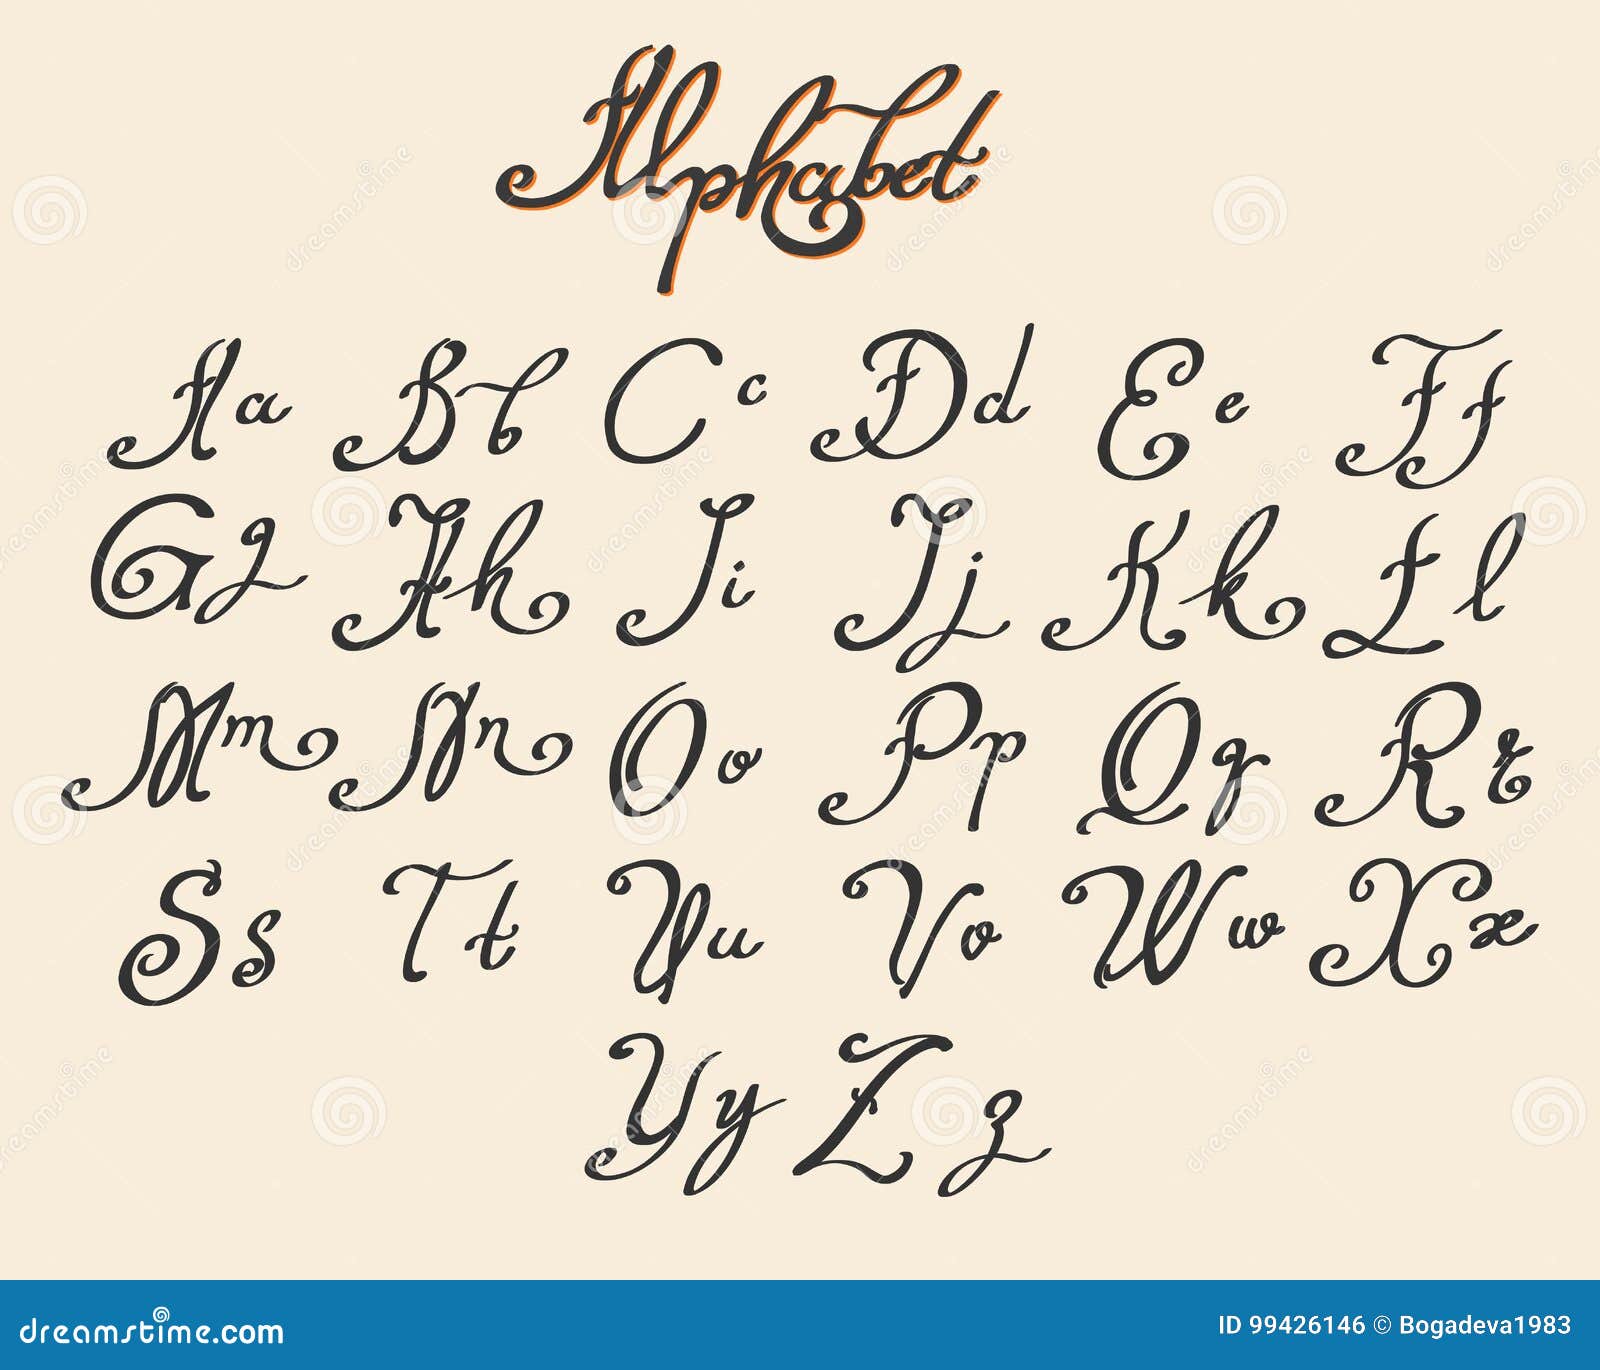 Alphabet
Aa Bb Cc Dd Ee Ff
Gg Hh Ii Jj Kk Ll
Mm Nn Oo Pp Qq Rr
Ss Tt Uu Vv Ww Xx
Yy Zz
dreamstime.com ID 99426146 © Bogadeva1983